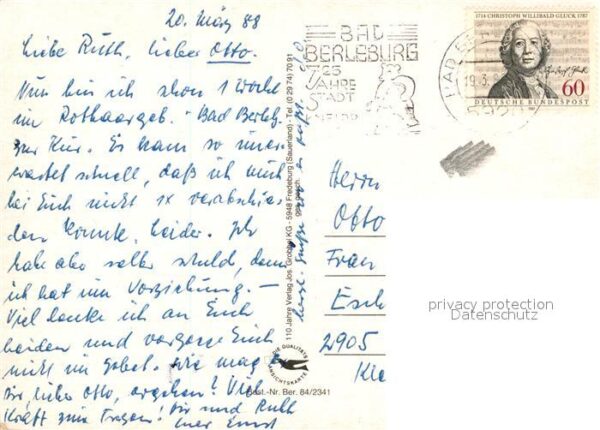 20. März 88
Liebe Ruth, lieber Otto.
Nun bin ich schon 1 Woche
im Rothaargeb. - Bad Berleb.
zur Kur. Es kam so uner-
wartet schnell, daß ich mich
bei Euch nicht 1x verabschie-
den konnte, leider. Ich
habe aber selber schuld, denn
ich hat um Vorziehung. -
Viel denke ich an Euch
beiden und vergesse Euch
nicht im Gebet. Wie mag es
Dir, lieber Otto, ergehen? Viel
Kraft zum Tragen! Dir und Ruth
Euer Ernst
herzl. Grüße
110 Jahre Verlag Jos. Grobbel KG - 5948 Fredeburg (Sauerland) - Tel. (0 29 74) 70 91
ges. gesch.
DIE QUALITÄTS
ANSICHTSKARTE
Best.-Nr. Ber. 84/2341
BAD
BERLEBURG
725
JAHRE
STADT
BAD BE
19.3.
5920
1714 · CHRISTOPH WILLIBALD GLUCK · 1787
60
DEUTSCHE BUNDESPOST
Herrn
Otto
Frau
Esch
2905
privacy protection
Datenschutz